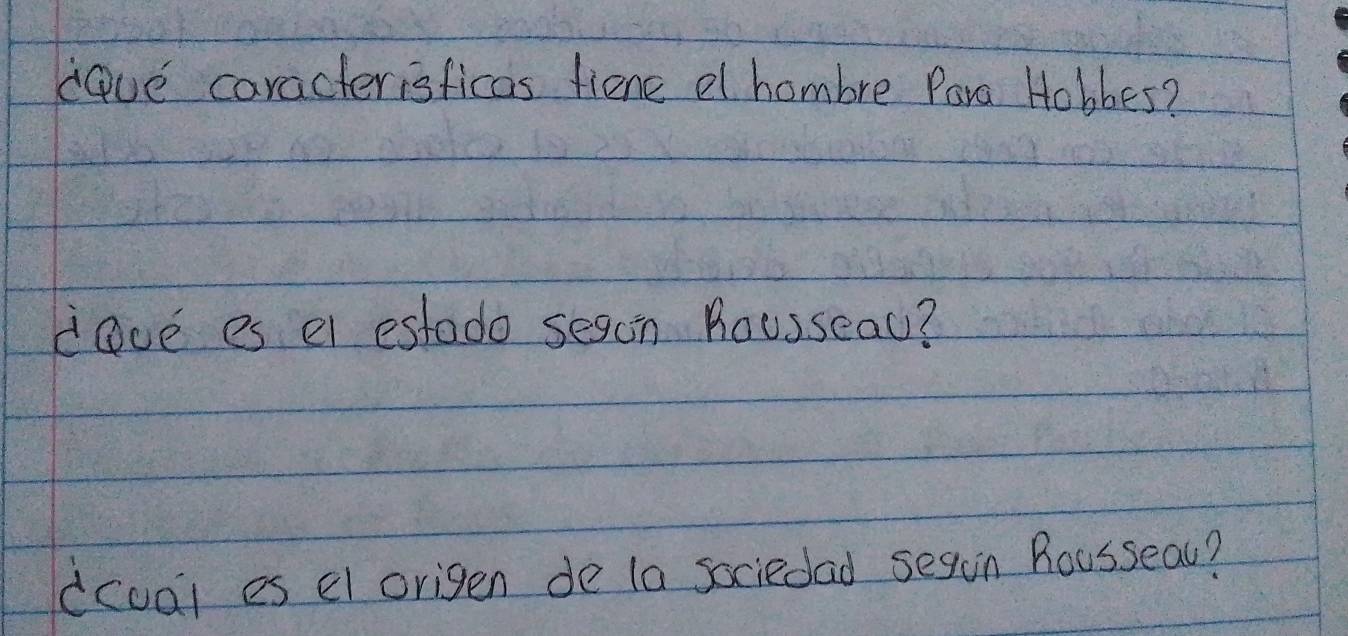 ¿Qué características tiene el hombre Para Hobbes?
¿Qué es el estado según Rousseau?
¿cuál es el origen de la sociedad según Rousseau?